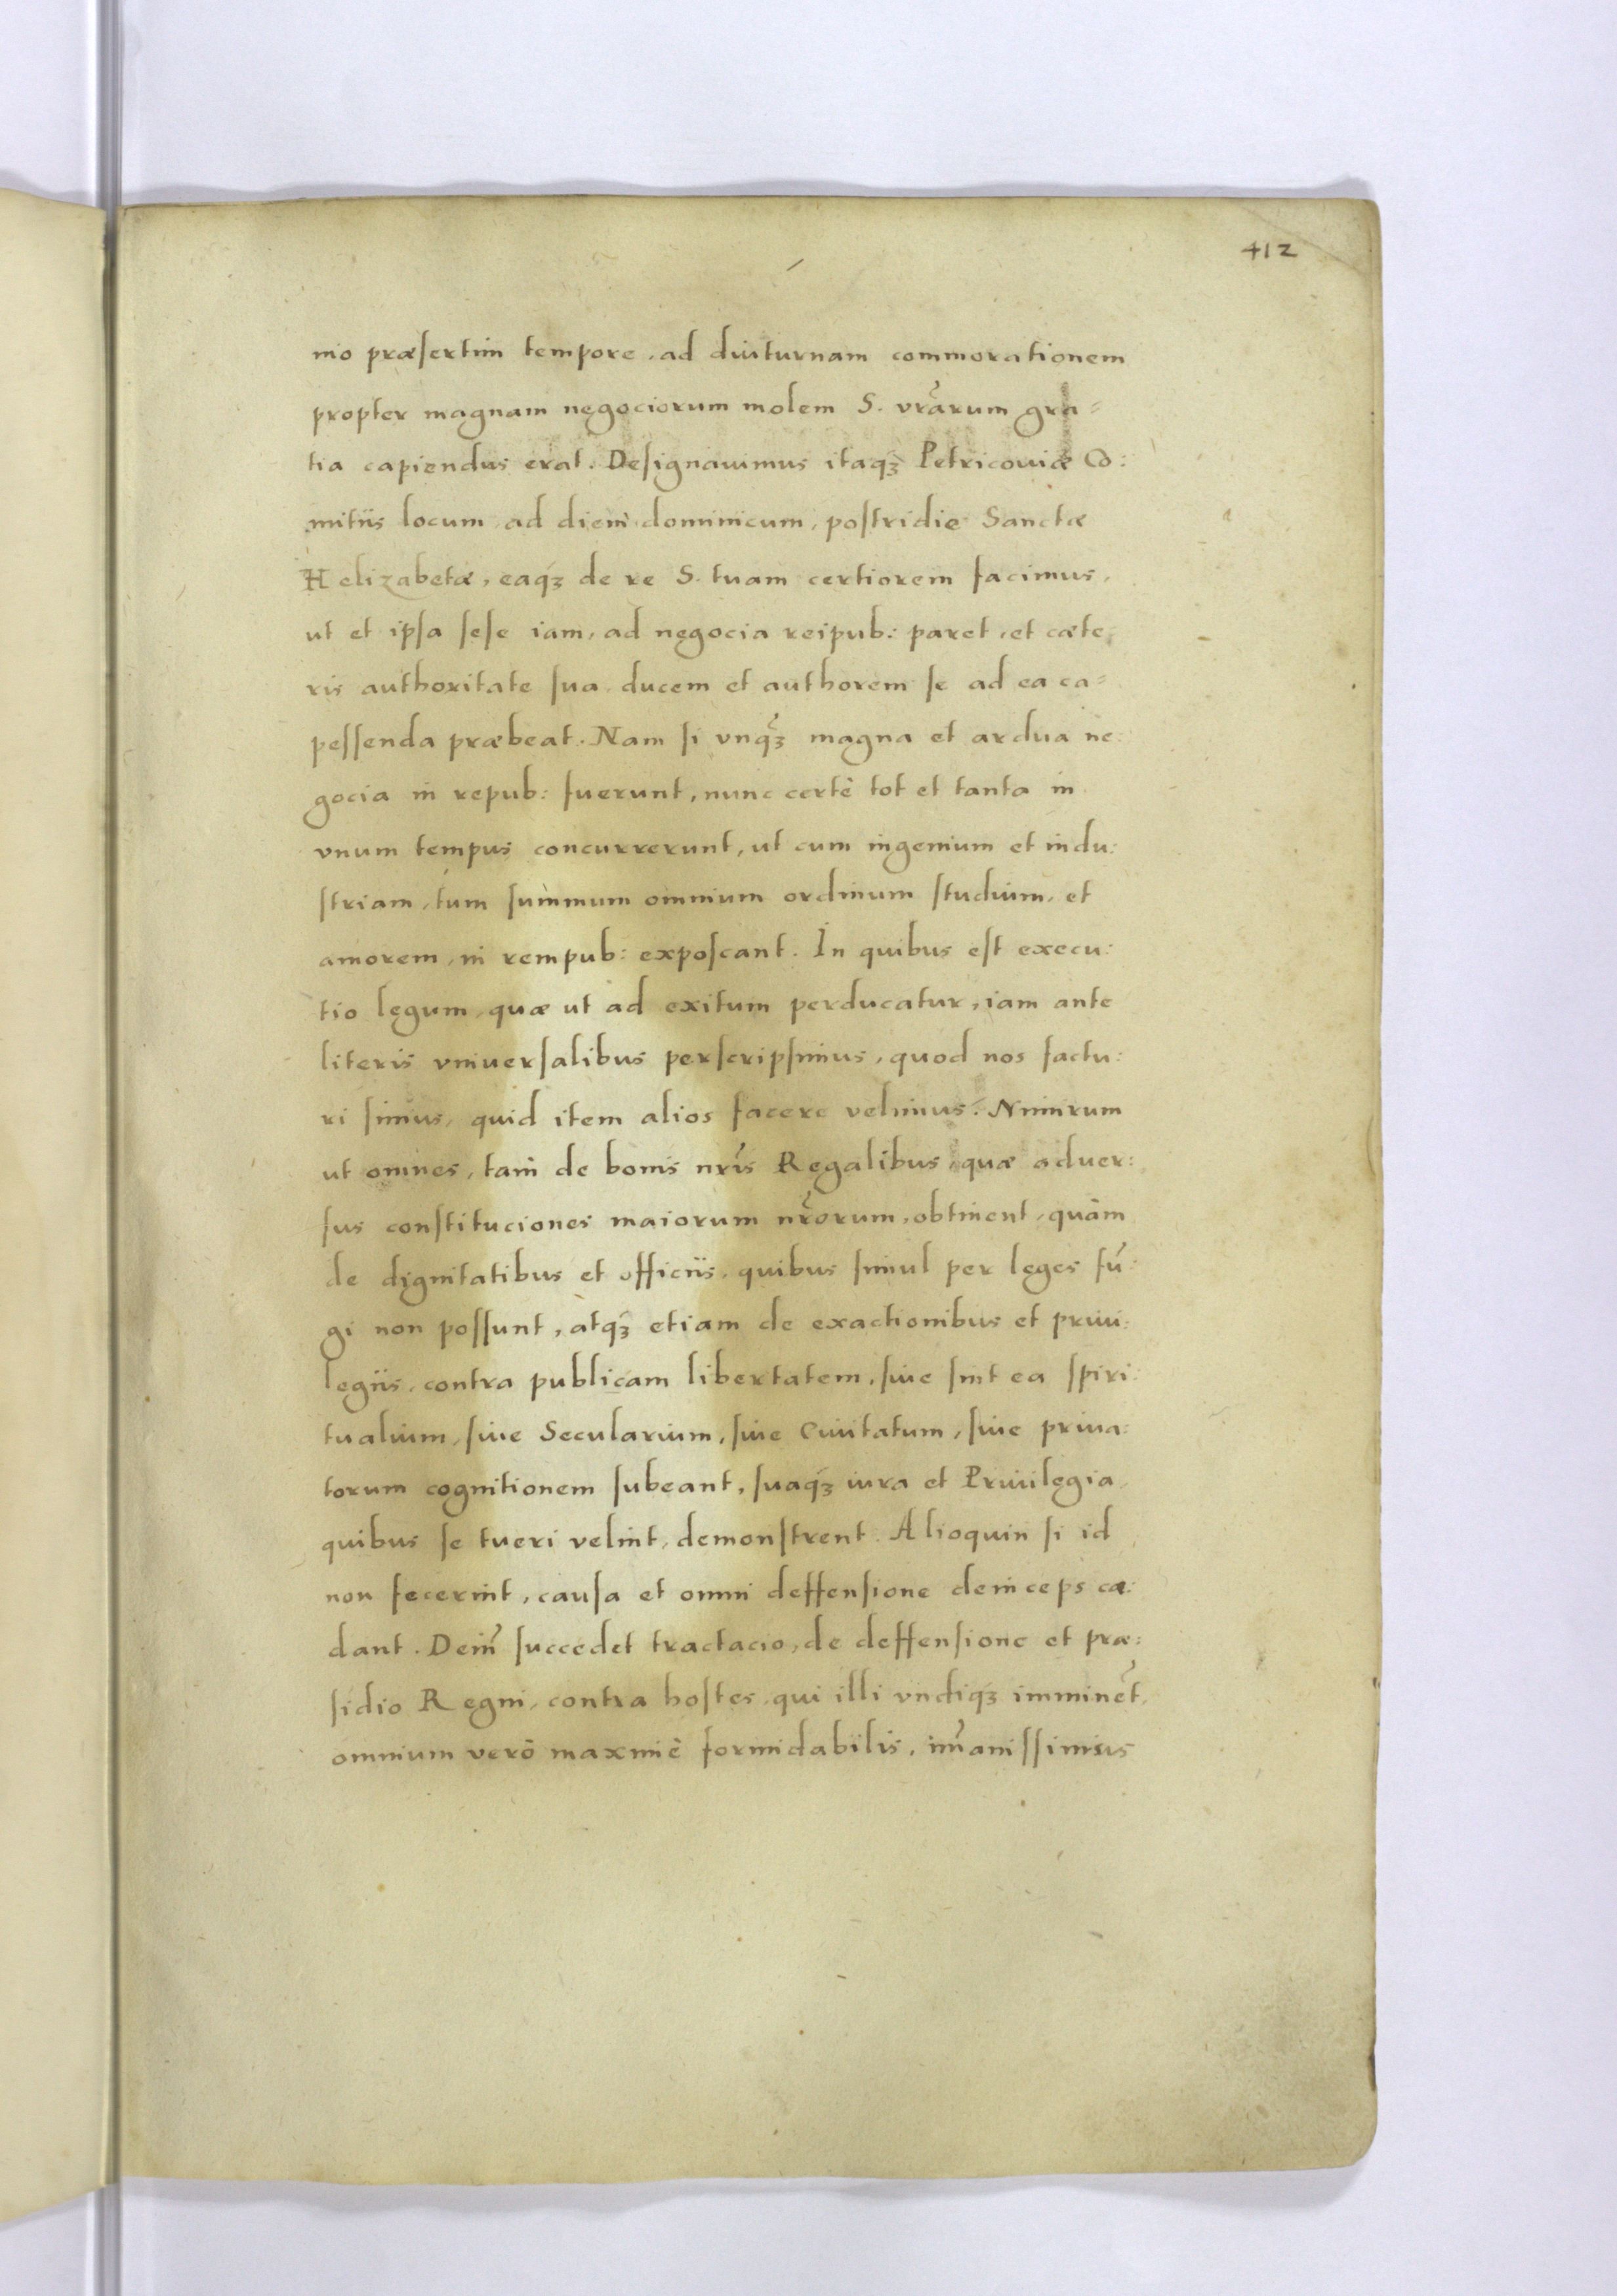 412
mo præsertim tempore, ad diuturnam commorationem
propter magnam negociorum molem S. vr̃arum gra=
tia capiendus erat. Designauimus itaqꝫ Petricouiæ Co:
mitiis locum, ad diem dominicum, postridie Sanctæ
Helizabetæ, eaqꝫ de re S. tuam certiorem facimus,
ut et ipsa sese iam, ad negocia reipub: paret, et cæte
ris authoritate sua ducem et authorem se ad ea ca=
pessenda præbeat. Nam si vnq̃ꝫ magna et ardua ne:
gocia in repub: fuerunt, nunc certè tot et tanta in
vnum tempus concurrerunt, ut cum ingenium et indu:
striam, tum summum omnium ordinum studium, et
amorem, in rempub: exposcant. In quibus est execu:
tio legum, quæ ut ad exitum perducatur, iam ante
literis vniuersalibus perscripsimus, quod nos factu:
ri simus, quid item alios facere velimus. Nimirum
ut omnes, tam de bonis nr̃is Regalibus, quæ aduer:
sus constituciones maiorum nr̃orum, obtinent, quàm
de dignitatibus et officiis, quibus simul per leges fũ:
gi non possunt, atqꝫ etiam de exactionibus et priui:
legiis, contra publicam libertatem, siue sint ea spiri:
tualium, siue Secularium, siue Ciuitatum, siue priua:
torum cognitionem subeant, suaqꝫ iura et Priuilegia,
quibus se tueri velint, demonstrent. Alioquin si id
non fecerint, causa et omni deffensione deinceps ca:
dant. Dein̄ succedet tractacio, de deffensione et præ:
sidio Regni, contra hostes, qui illi vndiqꝫ imminẽt,
omnium verò maximè formidabilis, im̃anissimus